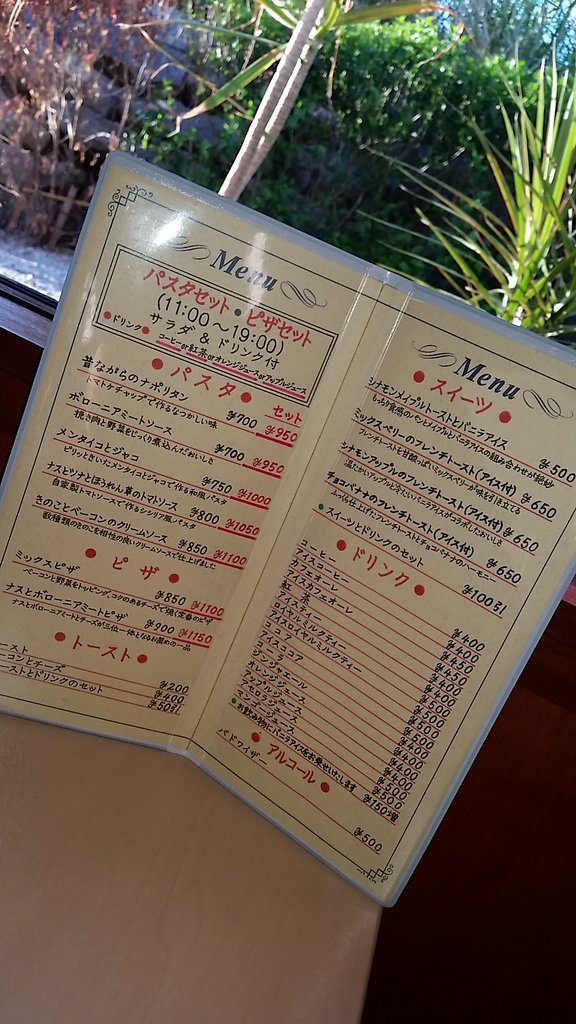 Menu
パスタセット・ピザセット
(11:00～19:00)
サラダ & ドリンク付
●ドリンク● コーヒーor紅茶orオレンジジュースorアップルジュース
● パスタ ● セット
昔ながらのナポリタン ¥700 ¥950
トマトケチャップで作るなつかしい味
ボローニアミートソース ¥700 ¥950
挽き肉と野菜をじっくり煮込んだおいしさ
メンタイコとジャコ ¥750 ¥1000
ピリッときいたメンタイコとジャコで作る和風パスタ
ナスとツナとほうれん草のトマトソース ¥800 ¥1050
自家製トマトソースで作るシシリア風パスタ
きのことベーコンのクリームソース ¥850 ¥1100
数種類のきのこを相性の良いクリームソースで仕上げました
● ピザ ●
ミックスピザ ¥850 ¥1100
ベーコンと野菜をトッピング、コクのあるチーズで焼く定番のピザ
ナスとボローニアミートピザ ¥900 ¥1150
ナスとボローニアミートとチーズが三位一体となるお薦めの一品
● トースト ●
スト ¥200
コンとチーズ ¥400
ストとドリンクのセット ¥501
Menu
● スイーツ ●
シナモンメイプルトーストとバニラアイス ¥500
もっちり食感のパンとメイプルとバニラアイスの組み合わせが絶妙
ミックスベリーのフレンチトースト(アイス付) ¥650
フレンチトーストを甘酸っぱいミックスベリーが味を引き立てる
シナモンアップルのフレンチトースト(アイス付) ¥650
温かいアップルと冷たいバニラアイスがコラボしたおいしさ
チョコバナナのフレンチトースト(アイス付) ¥650
ふっくら仕上げたフレンチトーストとチョコバナナのハーモニー
●スイーツとドリンクのセット ¥1003
● ドリンク ●
コーヒー ¥400
アイスコーヒー ¥400
カフェオーレ ¥450
アイスカフェオーレ ¥450
紅茶 ¥400
アイスティー ¥400
ロイヤルミルクティー ¥500
アイスロイヤルミルクティー ¥500
ココア ¥500
アイスココア ¥500
ジンジャエール ¥400
オレンジジュース ¥400
アップルジュース ¥400
マンゴージュース ¥500
●お飲み物にバニラアイスをお乗せいたします ¥150増
● アルコール ●
バドワイザー ¥500